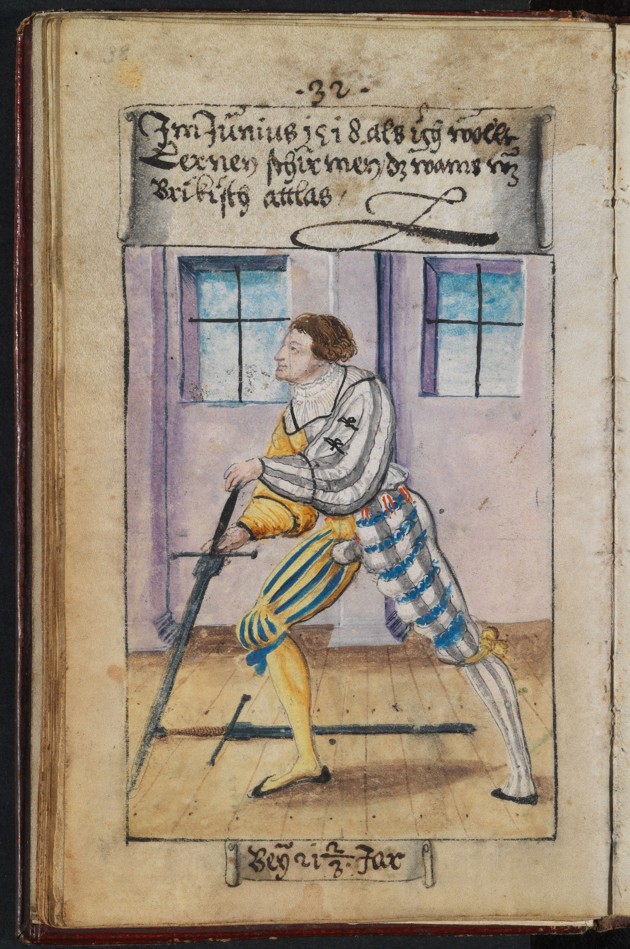 ·32·
Im Junius 1518 als ich wollt
Lernen schirmen dz wams wz
Brikisch attlas
Bey 21 2/3 Jar